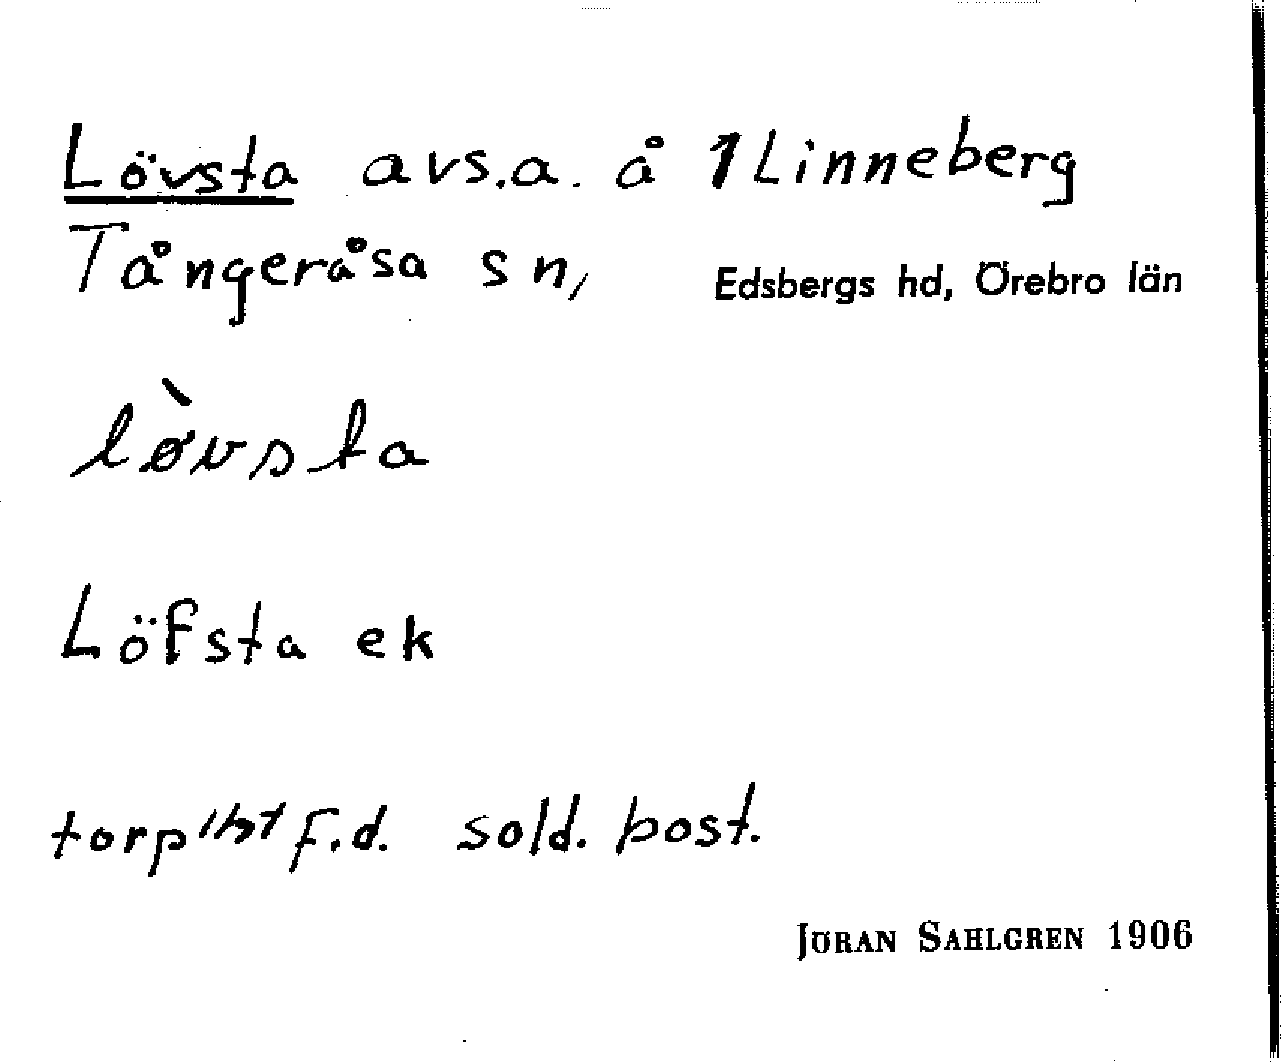 Lövsta avs.a. å 1 Linneberg
Tångeråsa sn, Edsbergs hd, Örebro län
lø̀vsta
Löfsta ek
torp f.d. sold. bost.
JÖRAN SAHLGREN 1906